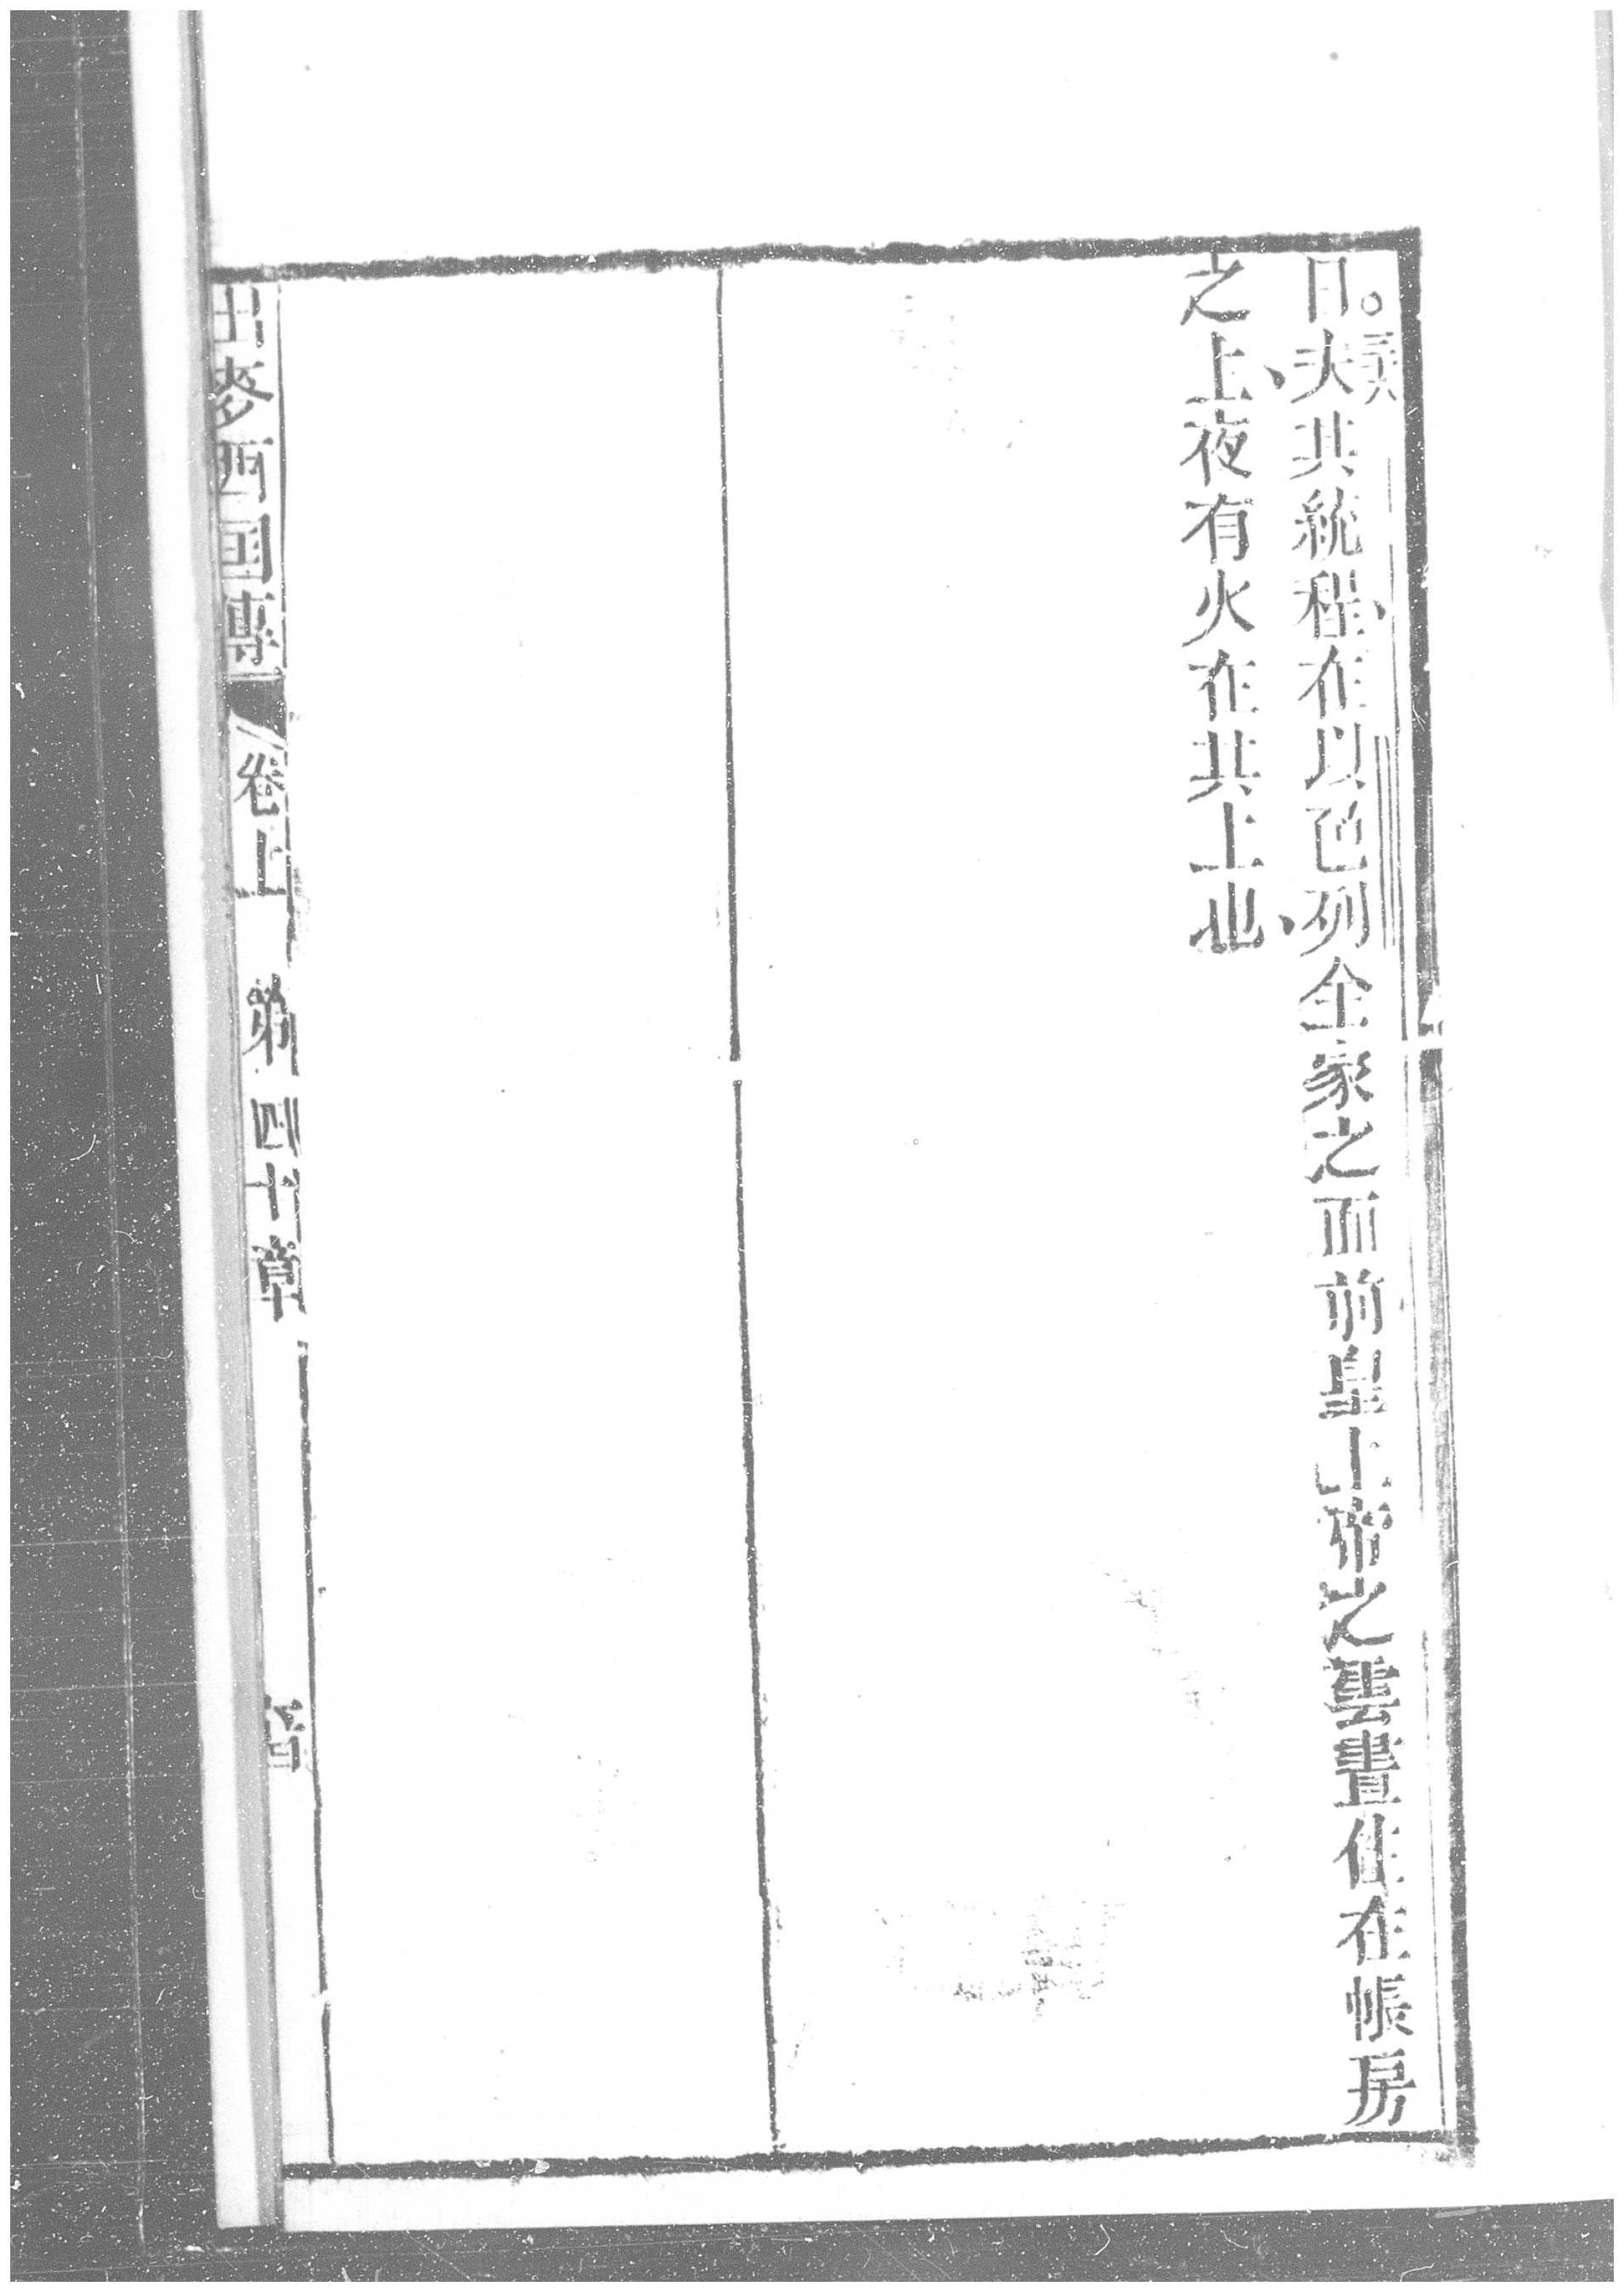 日。三八夫其統程、在以色列全家之面前皇上帝之雲晝住在帳房
之上、夜有火在其上也、
出麥西囯傳 卷上 第四十章